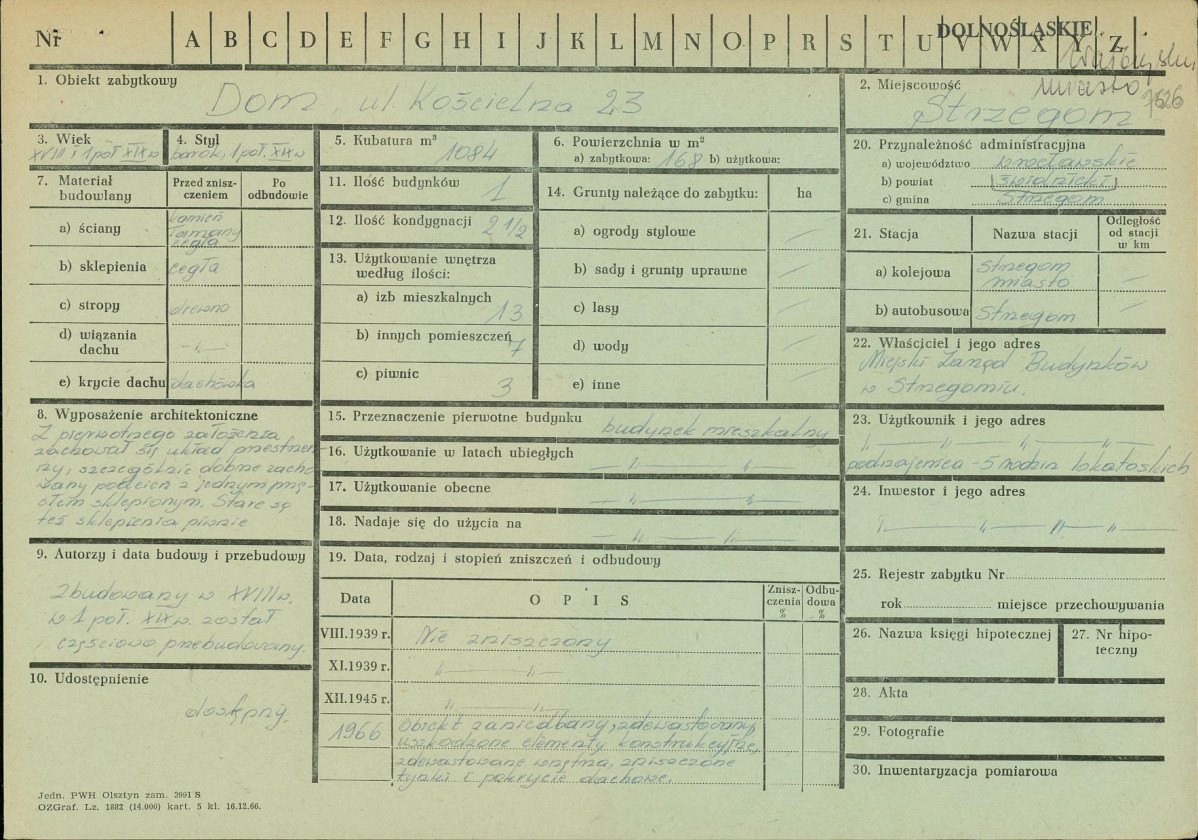 Nr A B C D E F G H I J K L M N O P R S T U V W X Y Z
DOLNOŚLĄSKIE
miasto
7626
1. Obiekt zabytkowy
Dom, ul. Kościelna 23
2. Miejscowość
Strzegom
3. Wiek
XVIII i 1 poł XIX w
4. Styl
barok, 1 poł. XIX w
5. Kubatura m³
1084
6. Powierzchnia w m²
a) zabytkowa: 168 b) użytkowa:
20. Przynależność administracyjna
a) województwo wrocławskie
b) powiat świdnicki
c) gmina Strzegom
7. Materiał budowlany
Przed zniszczeniem
Po odbudowie
a) ściany kamień
łamany
cegła
b) sklepienia cegła
c) stropy drewno
d) wiązania dachu -"-
e) krycie dachu dachówka
11. Ilość budynków 1
12. Ilość kondygnacji 2 1/2
13. Użytkowanie wnętrza
według ilości:
a) izb mieszkalnych 13
b) innych pomieszczeń 7
c) piwnic 3
14. Grunty należące do zabytku: ha
a) ogrody stylowe —
b) sady i grunty uprawne —
c) lasy —
d) wody —
e) inne —
21. Stacja
Nazwa stacji
Odległość
od stacji
w km
a) kolejowa Strzegom
miasto —
b) autobusowa Strzegom —
22. Właściciel i jego adres
Miejski Zarząd Budynków
w Strzegomiu.
8. Wyposażenie architektoniczne
Z pierwotnego założenia
zachował się układ przestrzen-
ny, szczególnie dobrze zacho-
wany podcień z jednym prze-
słem sklepionym. Stare są
też sklepienia piwnic
15. Przeznaczenie pierwotne budynku budynek mieszkalny
16. Użytkowanie w latach ubiegłych — " — " —
17. Użytkowanie obecne — " — " —
18. Nadaje się do użycia na — " — " —
23. Użytkownik i jego adres
" — " — " — "
podnajemca - 5 rodzin lokatorskich
24. Inwestor i jego adres
" — " — " — " —
9. Autorzy i data budowy i przebudowy
Zbudowany w XVIII w.
w 1 poł. XIX w. został
częściowo przebudowany.
10. Udostępnienie
dostępny.
19. Data, rodzaj i stopień zniszczeń i odbudowy
Data
OPIS
Zniszczenia %
Odbudowa %
VIII.1939 r. Nie zniszczony
XI.1939 r. " — " —
XII.1945 r. " — " —
1966 Obiekt zaniedbany, zdewastowany,
uszkodzone elementy konstrukcyjne,
zdewastowane wnętrza, zniszczone
tynki i pokrycie dachowe.
25. Rejestr zabytku Nr
rok miejsce przechowywania
26. Nazwa księgi hipotecznej
27. Nr hipo-
teczny
28. Akta
29. Fotografie
30. Inwentaryzacja pomiarowa
Jedn. PWH Olsztyn zam. 3991 S
OZGraf. Lz. 1882 (14.000) kart. 5 kl. 16.12.66.